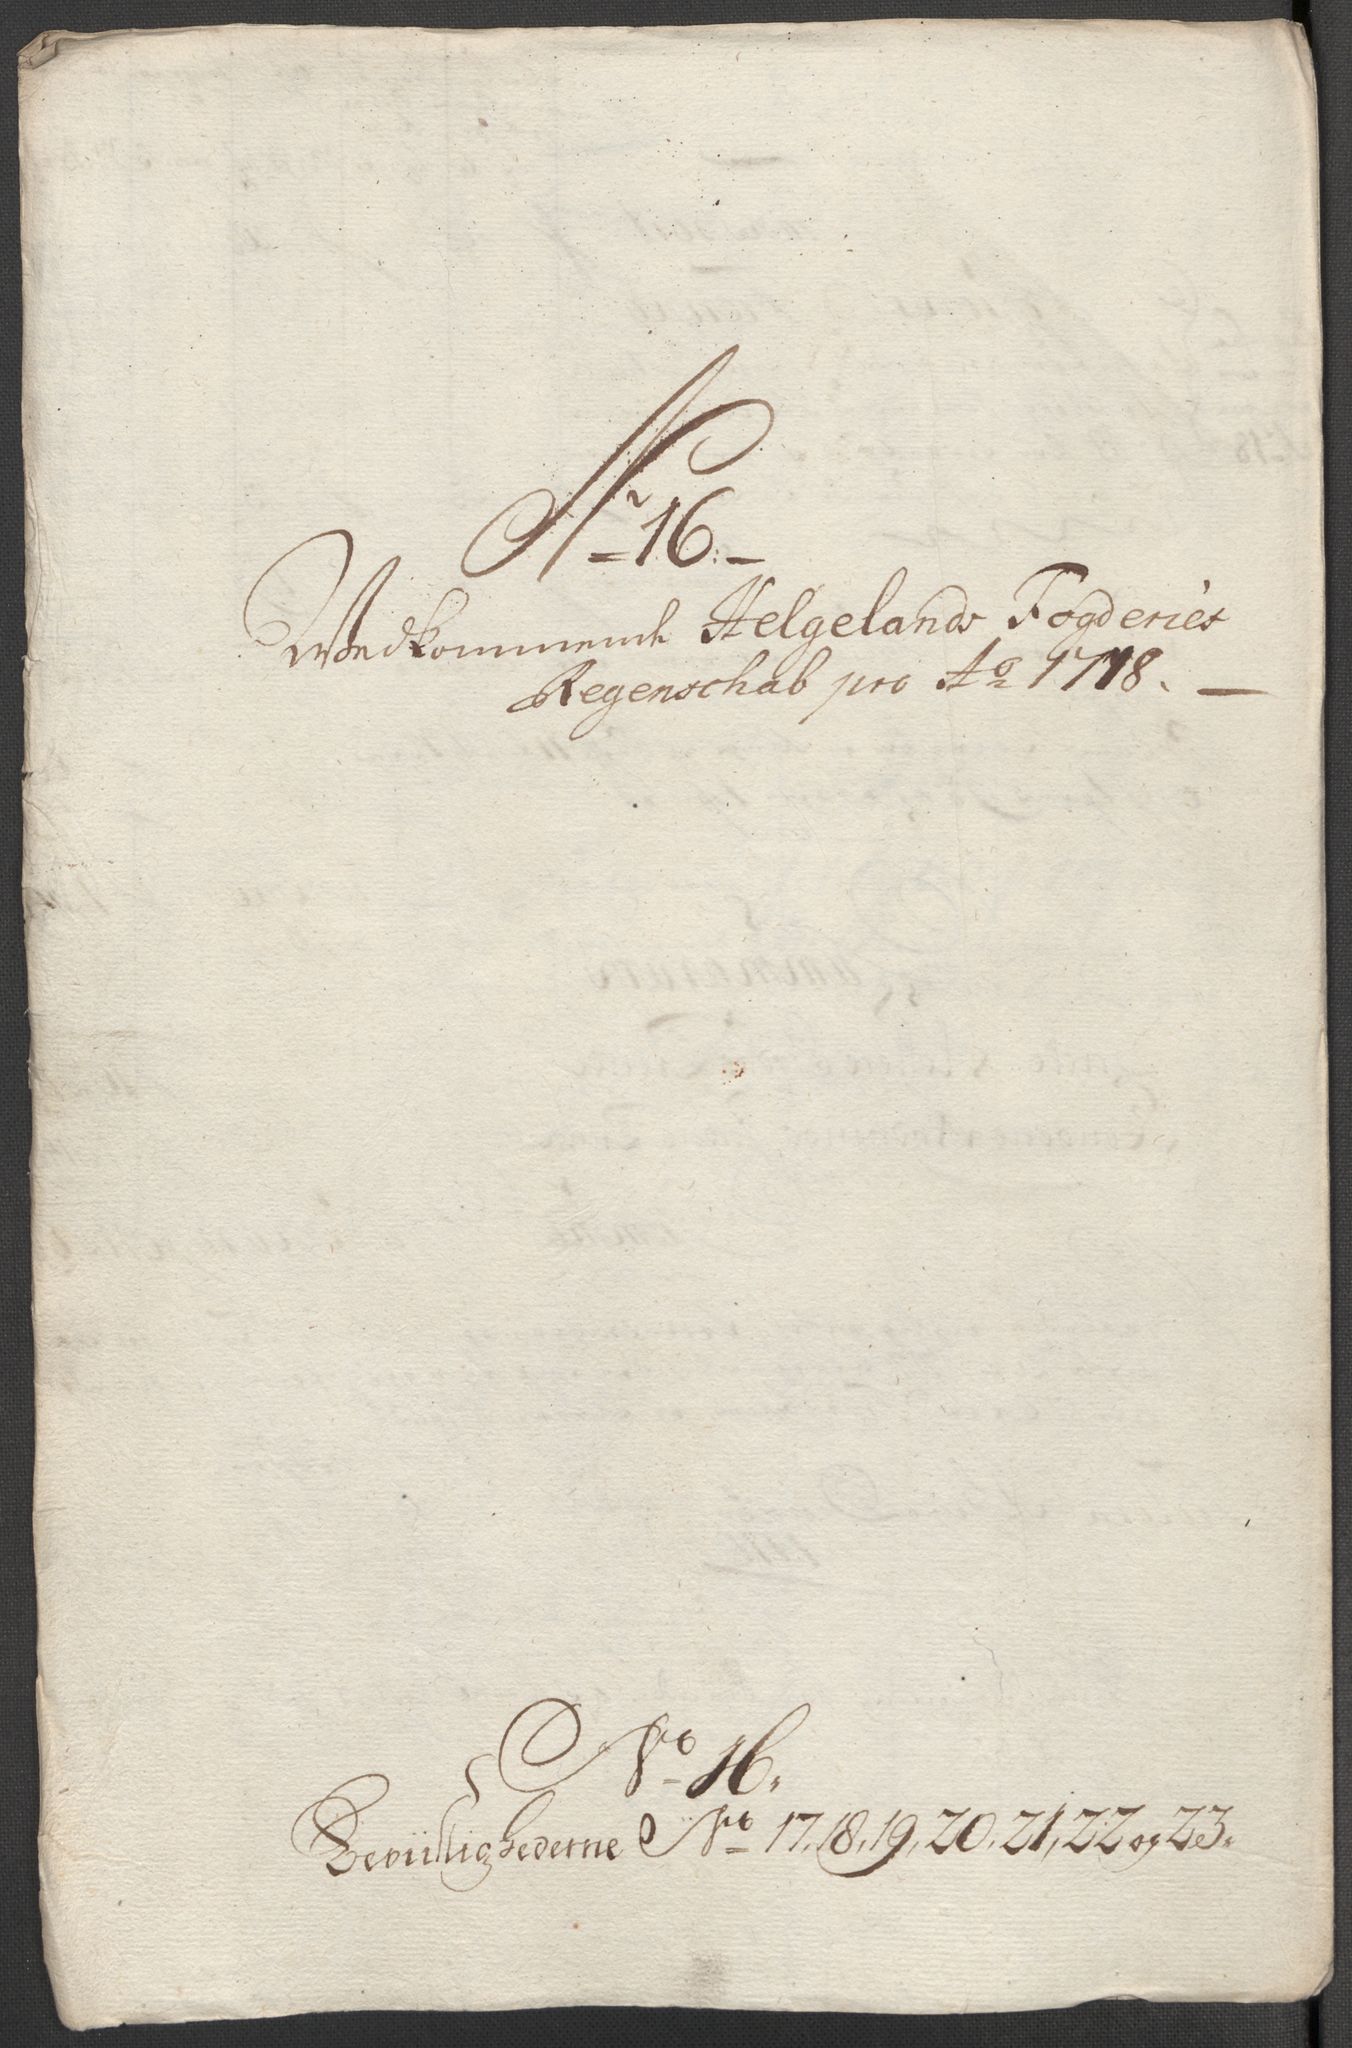 No 16.
Wedkommende Helgelands Fogderies
Regenschab pro Ao 1718.
No 16.
Bevillighederne No 17, 18, 19, 20, 21, 22 og 23.